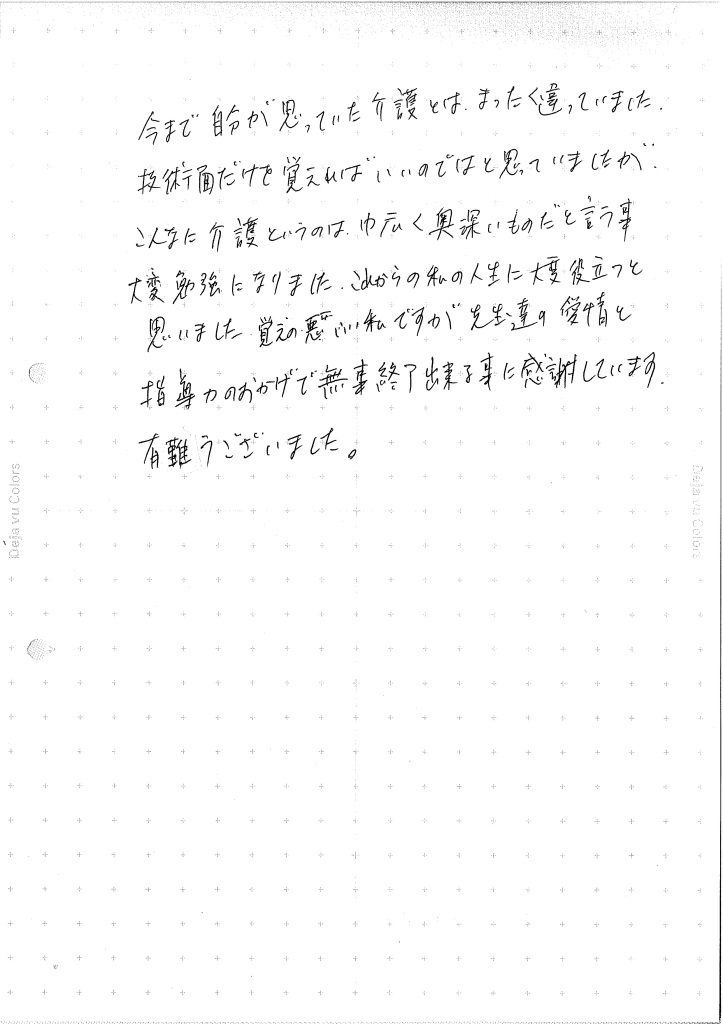 今まで自分が思っていた介護とは、まったく違っていました。
技術面だけを覚えればいいのではと思っていましたが、
こんなに介護というのは、巾広く奥深いものだと言う事
大変勉強になりました。これからの私の人生に大変役立つと
思いました。覚えの悪い私ですが先生達の愛情と
指導力のおかげで無事終了出来る事に感謝しています。
有難うございました。
Deja vu Colors
Deja vu Colors